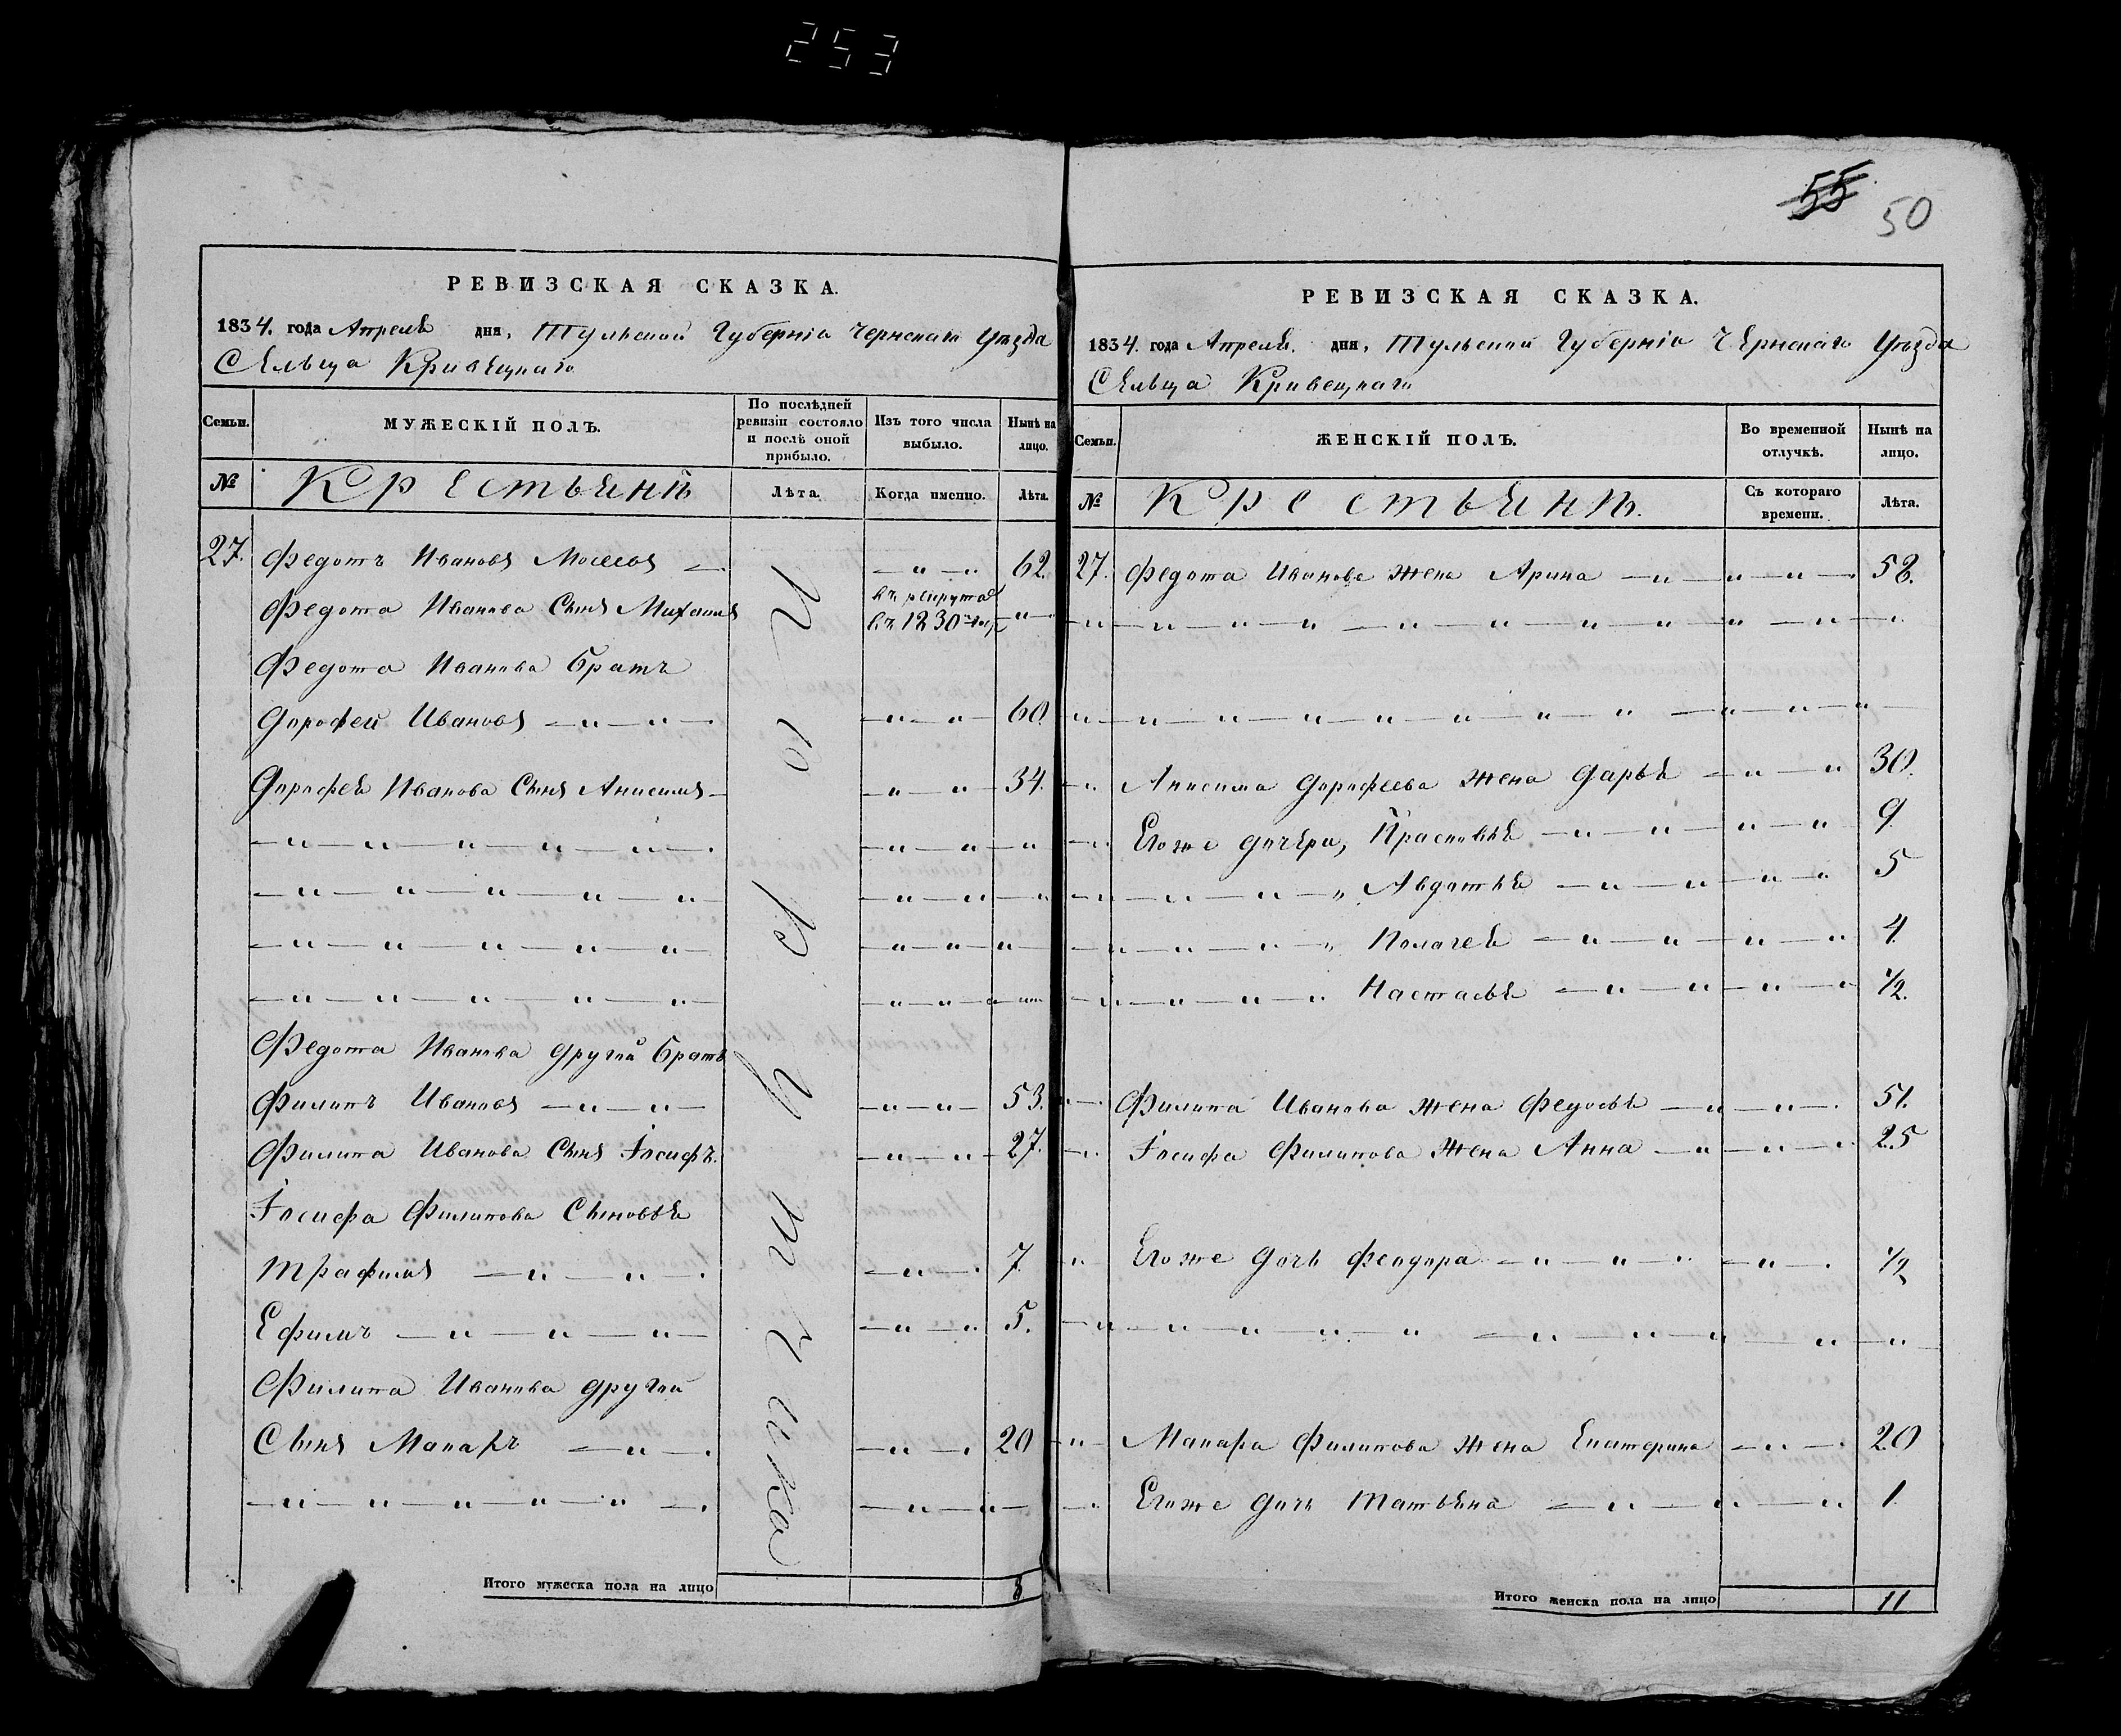 253
55 50
РЕВИЗСКАЯ СКАЗКА.
1834. года Апреля дня, Тульской Губерніи Чернскаго Уѣзда
Сельца Кривецкаго
Семьи. МУЖЕСКІЙ ПОЛЪ. По послѣдней ревизіи состояло и послѣ оной прибыло. Изъ того числа выбыло. Нынѣ на лицо.
№ Крестьянѣ Лѣта. Когда именно. Лѣта.
27. Федотъ Ивановъ 62.
Федота Иванова Сынъ Михаилъ въ рекрута въ 1830
Федота Иванова братъ
Дорофей Ивановъ — " — " — 60.
Дорофея Иванова Сынъ Анисимъ — 34.
Федота Иванова другой братъ
Филипъ Ивановъ — " — " — 53.
Филипа Иванова Сынъ Іосифъ. 27.
Іосифа Филипова Сыновья
Трафимъ — " — " — 7
Ефимъ — " — " — " — 5.
Филипа Иванова другой
Сынъ Макаръ — " — 20
Итого мужеска пола на лицо 8
РЕВИЗСКАЯ СКАЗКА.
1834. года Апреля. дня, Тульской Губерніи Чернскаго Уѣзда
Сельца Кривецкаго
Семьи. ЖЕНСКІЙ ПОЛЪ. Во временной отлучкѣ. Нынѣ на лицо.
№ Крестьянѣ. Съ котораго времени. Лѣта.
27. Федота Иванова жена Арина — " — " — " — 58.
Анисима Дорофеева жена Дарья — " — " 30.
Егоже дочери, Прасковья — " — " — " — " 9
Авдотья — " — " — " — " 5
Пелагея — " — " — " — " 4
Настасья — " — " — " — " 1/2.
Филипа Иванова жена Федосья — " — " — 51.
Іосифа Филипова жена Анна — " — " — " 25
Егоже дочь Феодора — " — " — " — " — 1/2
Макара Филипова жена Екатерина — " — 20
Егоже дочь Татьяна — " — " — " 1
Итого женска пола на лицо 11